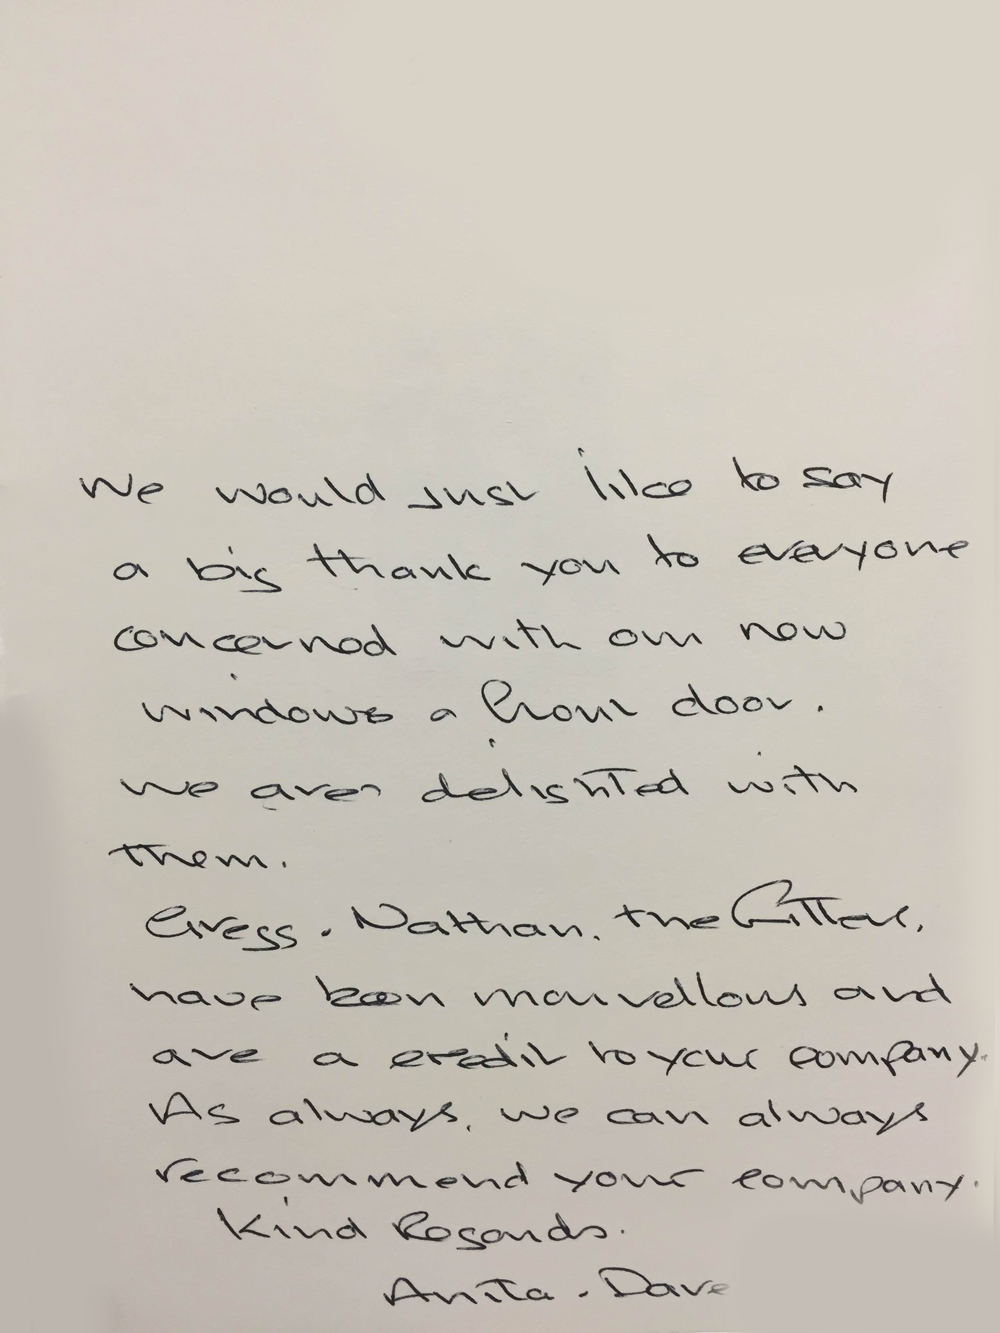 We would just like to say
a big thank you to everyone
concerned with our new
windows a front door.
We are delighted with
them.
Gregg. Nathan, the fitter,
have been marvellous and
are a credit to your company.
As always, we can always
recommend your company.
Kind Regards.
Anita. Dave